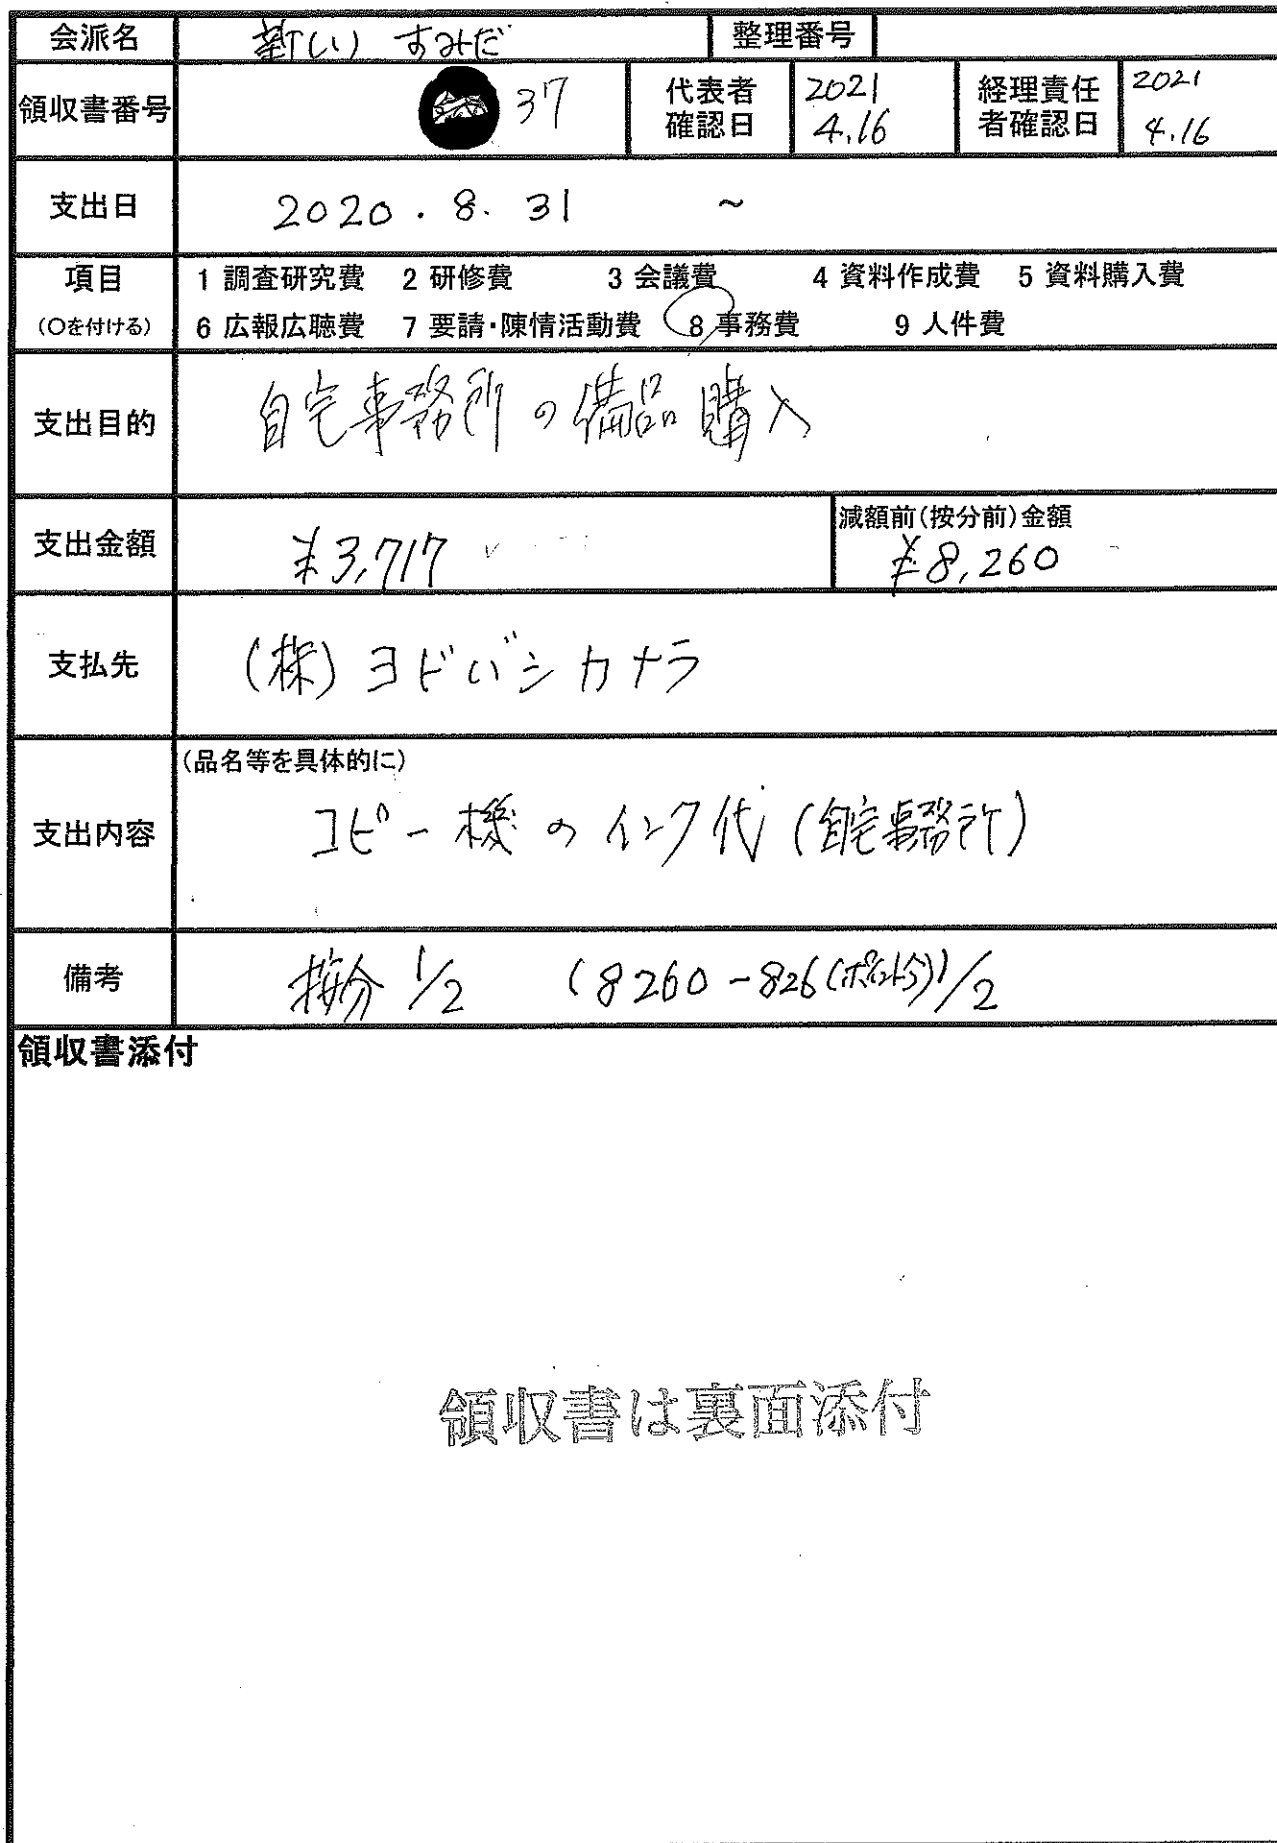 会派名 新しい すみだ 整理番号
領収書番号 37 代表者確認日 2021 4.16 経理責任者確認日 2021 4.16
支出日 2020.8.31 ~
項目 1 調査研究費 2 研修費 3 会議費 4 資料作成費 5 資料購入費
(○を付ける) 6 広報広聴費 7 要請・陳情活動費 8 事務費 9 人件費
支出目的 自宅事務所の備品購入
支出金額 ¥3,717 減額前(按分前)金額 ¥8,260
支払先 (株)ヨドバシカメラ
(品名等を具体的に)
支出内容 コピー機のインク代(自宅事務所)
備考 按分 1/2 (8260-826(ポイント分))/2
領収書添付
領収書は裏面添付